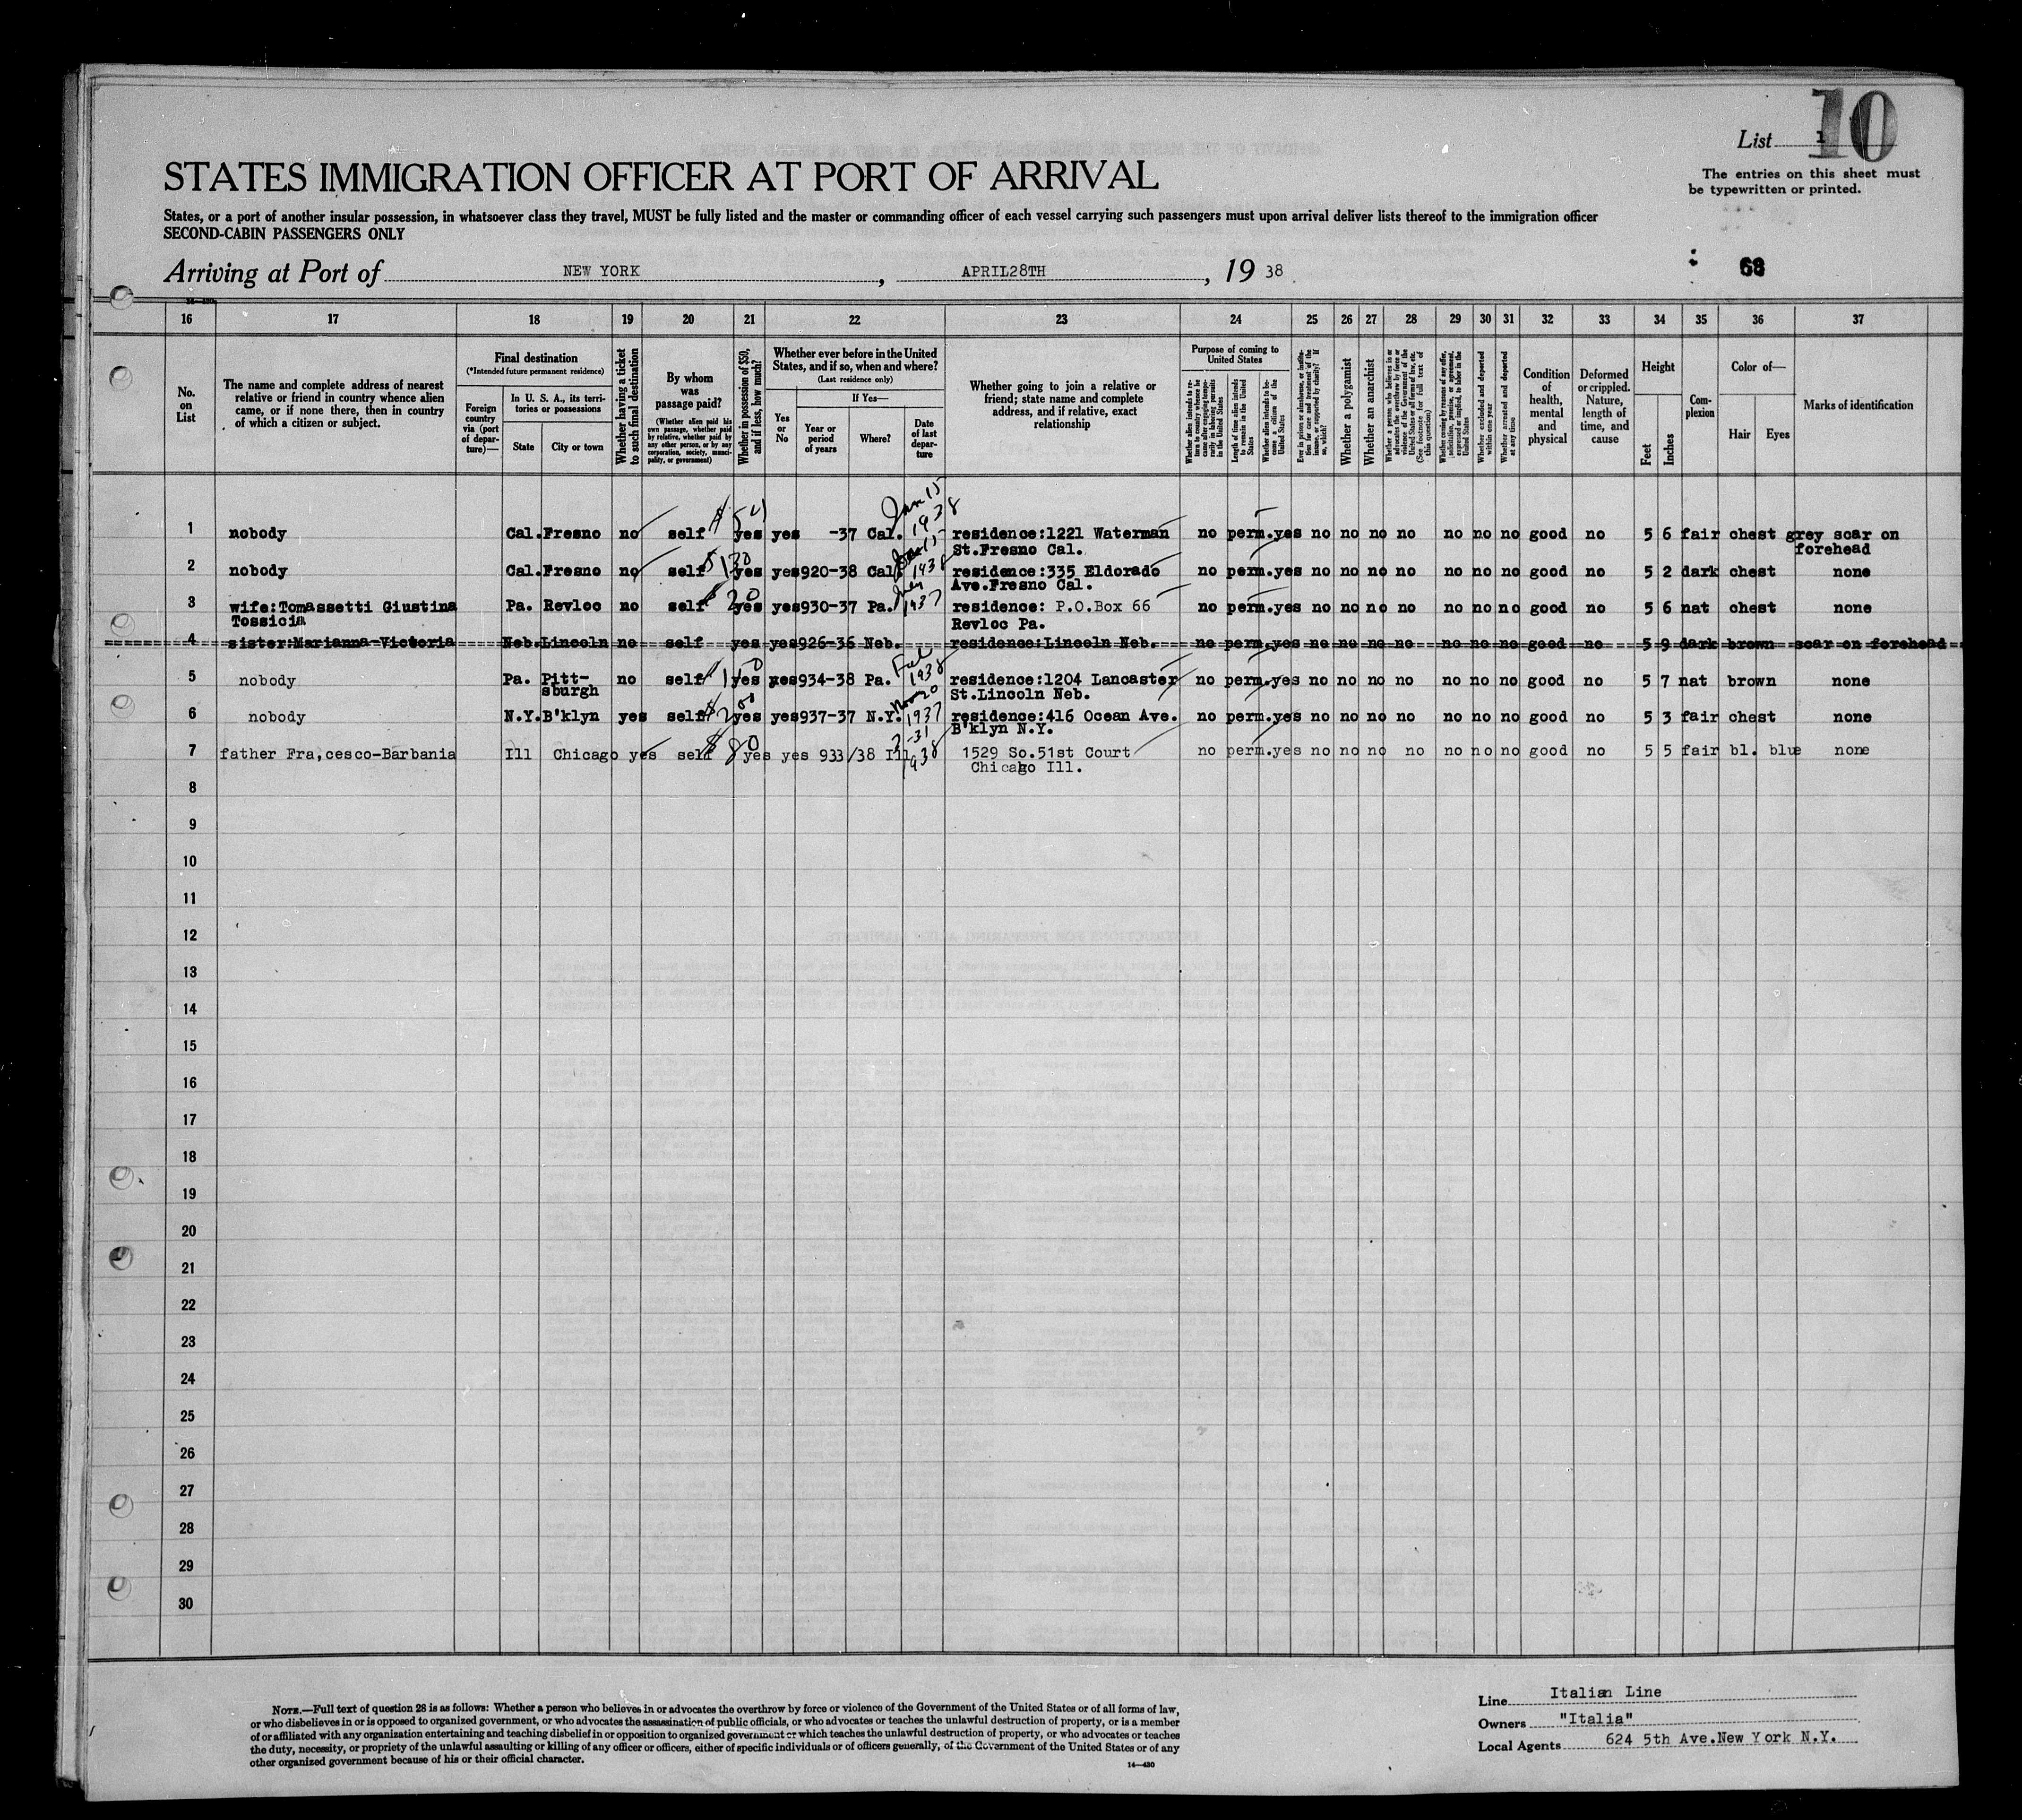 10
List 1
The entries on this sheet must
be typewritten or printed.
STATES IMMIGRATION OFFICER AT PORT OF ARRIVAL
States, or a port of another insular possession, in whatsoever class they travel, MUST be fully listed and the master or commanding officer of each vessel carrying such passengers must upon arrival deliver lists thereof to the immigration officer
SECOND-CABIN PASSENGERS ONLY
Arriving at Port of NEW YORK, APRIL28TH, 19 38
68
16 17 18 19 20 21 22 23 24 25 26 27 28 29 30 31 32 33 34 35 36 37
No. on List
The name and complete address of nearest
relative or friend in country whence alien
came, or if none there, then in country
of which a citizen or subject.
Final destination
(*Intended future permanent residence)
Foreign country via (port of departure)—
In U. S. A., its territories or possessions
State City or town
Whether having a ticket to such final destination
By whom was passage paid?
(Whether alien paid his own passage, whether paid by relative, whether paid by any other person, or by any corporation, society, municipality, or government)
Whether in possession of $50, and if less, how much?
Whether ever before in the United
States, and if so, when and where?
(Last residence only)
Yes or No
If Yes—
Year or period of years
Where?
Date of last departure
Whether going to join a relative or
friend; state name and complete
address, and if relative, exact
relationship
Purpose of coming to United States
Whether alien intends to return to country whence he came after engaging temporarily in laboring pursuits in the United States
Length of time alien intends to remain in the United States
Whether alien intends to become a citizen of the United States
Ever in prison or almshouse, or institution for care and treatment of the insane, or supported by charity? If so, which?
Whether a polygamist
Whether an anarchist
Whether a person who believes in or advocates the overthrow by force or violence of the Government of the United States or all forms of law, etc. (See footnote for full text of this question)
Whether coming by reason of any offer, solicitation, promise, or agreement, expressed or implied, to labor in the United States
Whether excluded and deported within one year
Whether arrested and deported at any time
Condition of health, mental and physical
Deformed or crippled. Nature, length of time, and cause
Height
Feet Inches
Complexion
Color of—
Hair Eyes
Marks of identification
1 nobody Cal. Fresno no self $50 yes yes -37 Cal. Jan 15 1938 residence:1221 Waterman no perm. yes no no no no no no no good no 5 6 fair chest grey scar on
St.Fresno Cal. forehead
2 nobody Cal. Fresno no self $130 yes yes 920-38 Cal 1938 residence:335 Eldorado no perm. yes no no no no no no no good no 5 2 dark chest none
Ave.Fresno Cal.
3 wife:Tomassetti Giustina Pa. Revloc no self $20 yes yes 930-37 Pa. 1937 residence: P.O.Box 66 no perm. yes no no no no no no no good no 5 6 nat chest none
Tossicia Revloc Pa.
4 sister:Marianna-Victoria Neb. Lincoln no self yes yes 926-36 Neb. residence:Lincoln Neb. no perm. yes no no no no no no no good no 5 9 dark brown scar on forehead
5 nobody Pa. Pitt- no self $150 yes yes 934-38 Pa. 1938 residence:1204 Lancaster no perm. yes no no no no no no no good no 5 7 nat brown none
sburgh St.Lincoln Neb.
6 nobody N.Y. B'klyn yes self $200 yes yes 937-37 N.Y. Nov 20 1937 residence:416 Ocean Ave. no perm. yes no no no no no no no good no 5 3 fair chest none
B'klyn N.Y.
7 father Fra,cesco-Barbania Ill Chicago yes self $80 yes yes 933/38 Ill 1938 1529 So.51st Court no perm. yes no no no no no no no good no 5 5 fair bl. blue none
Chicago Ill.
8
9
10
11
12
13
14
15
16
17
18
19
20
21
22
23
24
25
26
27
28
29
30
NOTE.—Full text of question 28 is as follows: Whether a person who believes in or advocates the overthrow by force or violence of the Government of the United States or of all forms of law,
or who disbelieves in or is opposed to organized government, or who advocates the assassination of public officials, or who advocates or teaches the unlawful destruction of property, or is a member
of or affiliated with any organization entertaining and teaching disbelief in or opposition to organized government or which teaches the unlawful destruction of property, or who advocates or teaches
the duty, necessity, or propriety of the unlawful assaulting or killing of any officer or officers, either of specific individuals or of officers generally, of the Government of the United States or of any
other organized government because of his or their official character.
14—430
Line Italian Line
Owners "Italia"
Local Agents 624 5th Ave.New York N.Y.